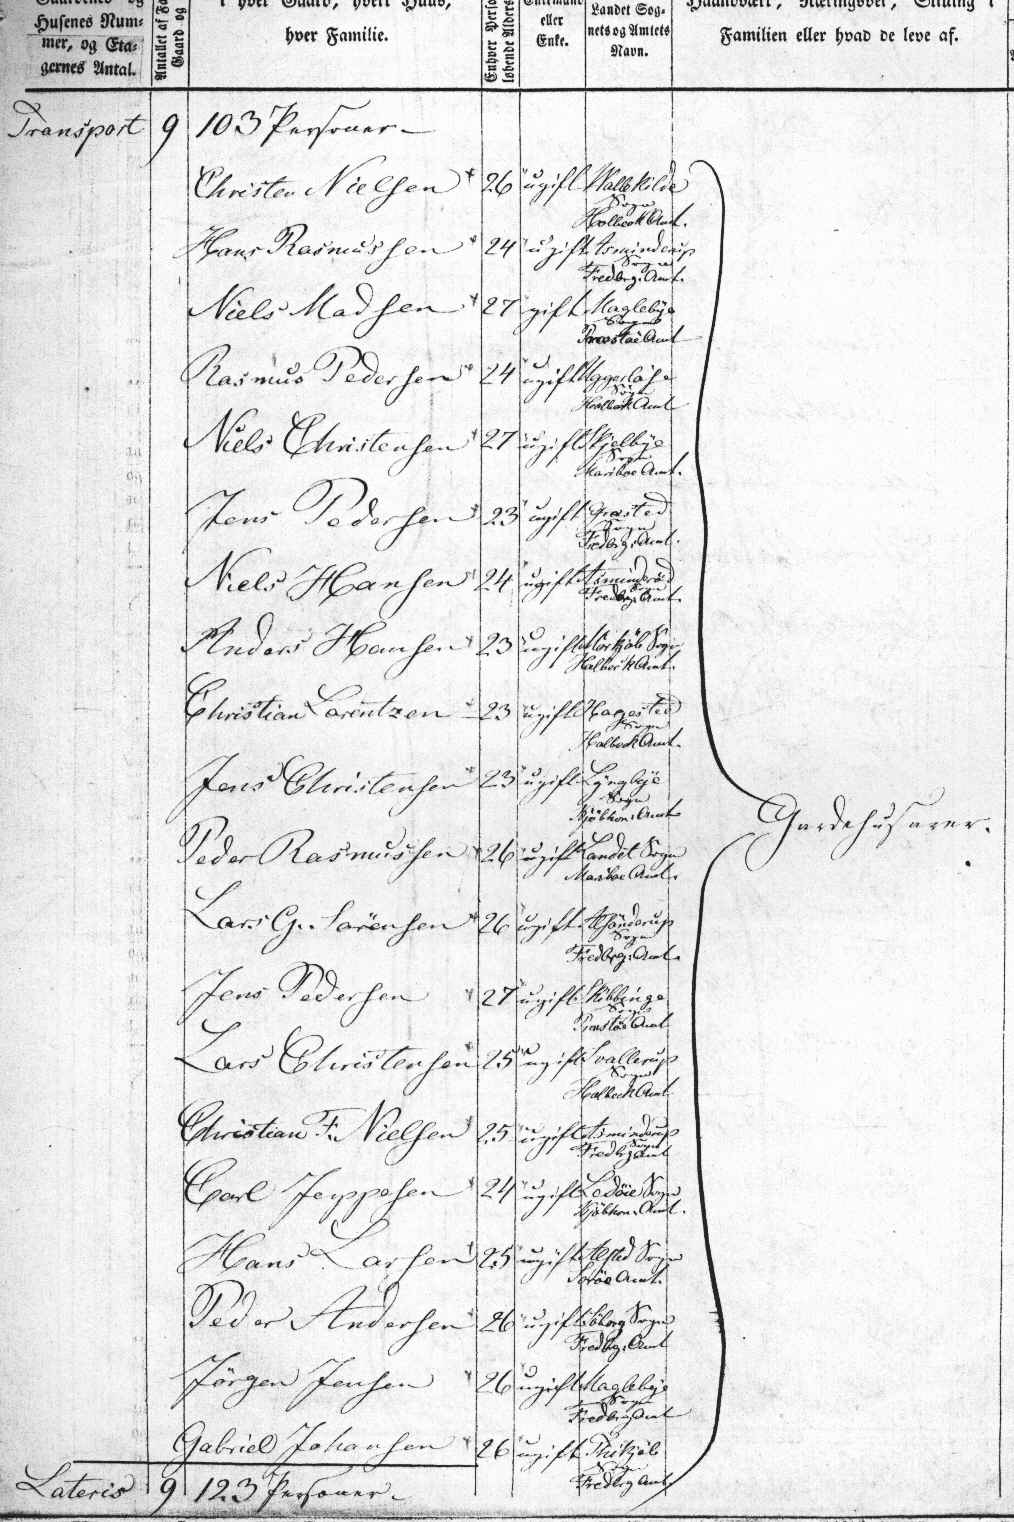 Husenes Num-
mer, og Eta-
gernes Antal.
Antallet af
Gaard og
i hver Gaard, hvert Huus,
hver Familie.
løbende Alders
eller
Enke.
Landet Sog-
nets og Amtets
Navn.
Haandværk, Næringsvei, Stilling i
Familien eller hvad de leve af.
Transport 9 103 Personer
Christen Nielsen 26 ugift Hallekilde
Sogn
Holbeck Amt.
Hans Rasmussen 24 ugift Asminderup
Sogn
Fredbrg. Amt.
Niels Madsen 27 gift Maglebye
Sogn
Præstøe Amt
Rasmus Pedersen 24 ugift Uggerløse
Sogn
Holbek Amt
Niels Christensen 27 ugift Skjelbye
Sogn
Mariboe Amt.
Jens Pedersen 23 ugift Græsted
Sogn
Fredbrg. Amt.
Niels Hansen 24 ugift Asminderød
Sogn
Fredbrg. Amt.
Anders Hansen 23 ugift Mørkjøb Sogn
Holbek Amt.
Christian Lorentzen 23 ugift Hagested
Sogn
Holbek Amt.
Jens Christensen 23 ugift Lyngbye
Sogn
Kjöbhon. Amt
Peder Rasmussen 26 ugift Landet Sogn
Mariboe Amt.
Gardehusarer.
Lars G. Sörensen 26 ugift
Sogn
Fredbrg. Amt.
Jens Pedersen 27 ugift Kibbinge
Sogn
Præstöe Amt
Lars Christensen 25 ugift Svallerup
Sogn
Holbek Amt
Christian F. Nielsen 25 ugift Asminderup
Sogn
Fredbrg Amt
Carl Jeppesen 24 ugift Ledöie Sogn
Kjöbhon. Amt.
Hans Larsen 25 ugift Alsted Sogn
Soröe Amt.
Peder Andersen 26 ugift Sogn
Fredbrg. Amt
Jörgen Jensen 26 ugift Maglebye
Sogn
Fredbrg Amt
Gabriel Johansen 26 ugift Tikjöb
Sogn
Fredbrg Amt
Lateris 9 123 Personer